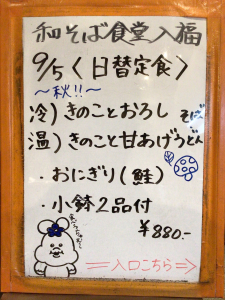 和そば食堂入福
9/5〈日替定食〉
～秋!!～
冷)きのことおろしそば
温)きのこと甘あげうどん
・おにぎり(鮭)
・小鉢2品付
¥880-
入口こちら